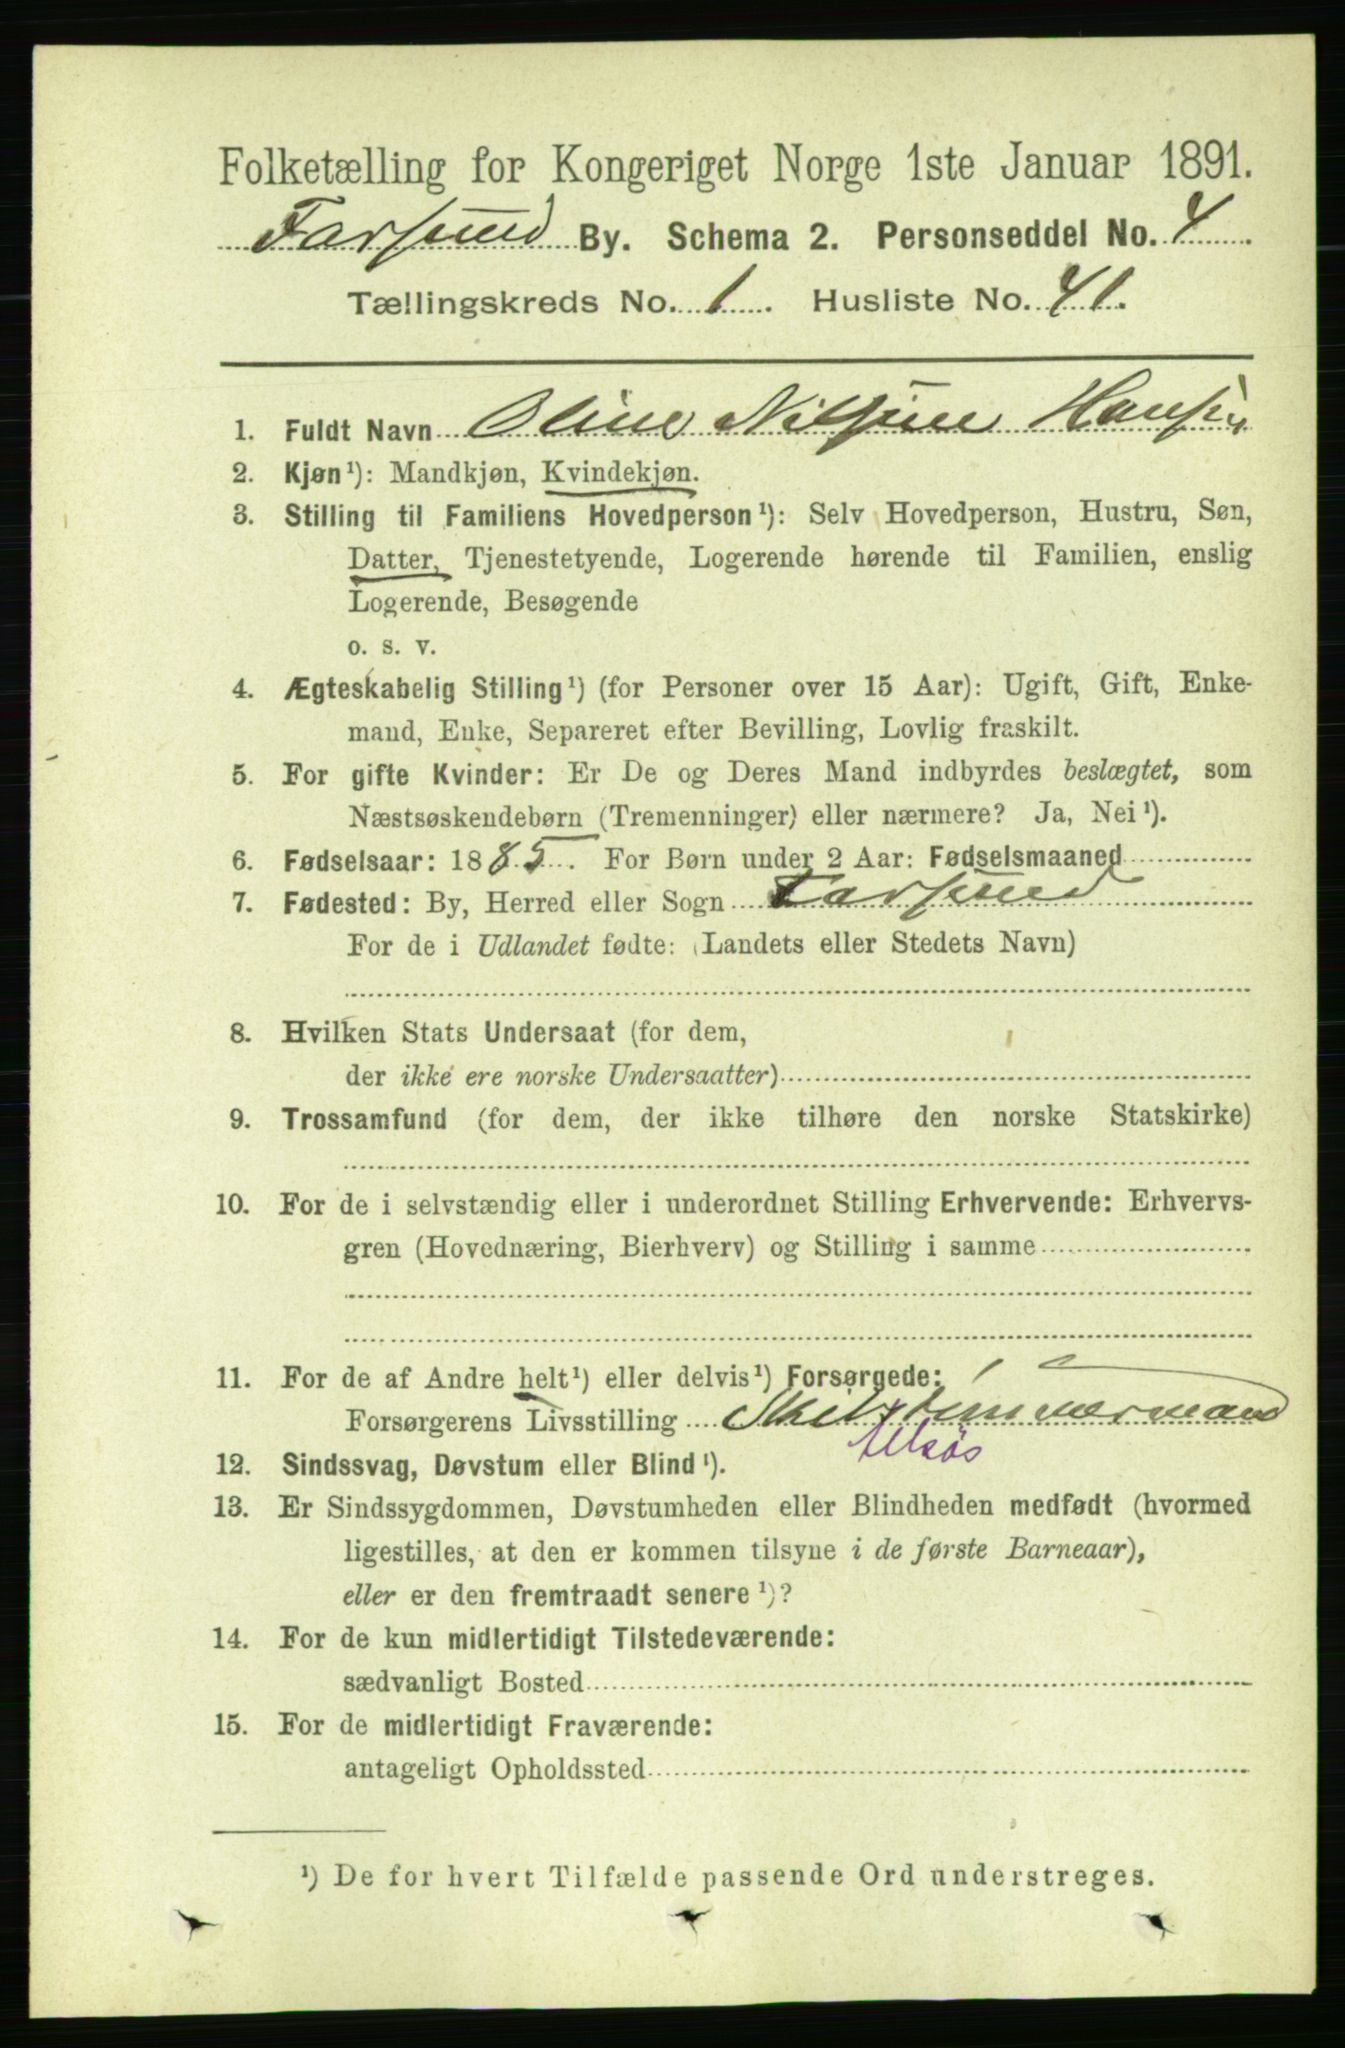 Folketælling for Kongeriget Norge 1ste Januar 1891.
Farsund By. Schema 2. Personseddel No. 4
Tællingskreds No. 1. Husliste No. 41.
1. Fuldt Navn Oline Nilsine Hansen
2. Kjøn ¹): Mandkjøn, Kvindekjøn.
3. Stilling til Familiens Hovedperson ¹): Selv Hovedperson, Hustru, Søn,
Datter, Tjenestetyende, Logerende hørende til Familien, enslig
Logerende, Besøgende
o. s. v.
4. Ægteskabelig Stilling ¹) (for Personer over 15 Aar): Ugift, Gift, Enke-
mand, Enke, Separeret efter Bevilling, Lovlig fraskilt.
5. For gifte Kvinder: Er De og Deres Mand indbyrdes beslægtet, som
Næstsøskendebørn (Tremenninger) eller nærmere? Ja, Nei ¹).
6. Fødselsaar: 1885. For Børn under 2 Aar: Fødselsmaaned
7. Fødested: By, Herred eller Sogn Farsund
For de i Udlandet fødte: (Landets eller Stedets Navn)
8. Hvilken Stats Undersaat (for dem,
der ikke ere norske Undersaatter)
9. Trossamfund (for dem, der ikke tilhøre den norske Statskirke)
10. For de i selvstændig eller i underordnet Stilling Erhvervende: Erhvervs-
gren (Hovednæring, Bierhverv) og Stilling i samme
11. For de af Andre helt ¹) eller delvis ¹) Forsørgede:
Forsørgerens Livsstilling Skibstimmermand
12. Sindssvag, Døvstum eller Blind ¹).
13. Er Sindssygdommen, Døvstumheden eller Blindheden medfødt (hvormed
ligestilles, at den er kommen tilsyne i de første Barneaar),
eller er den fremtraadt senere ¹)?
14. For de kun midlertidigt Tilstedeværende:
sædvanligt Bosted
15. For de midlertidigt Fraværende:
antageligt Opholdssted
¹) De for hvert Tilfælde passende Ord understreges.